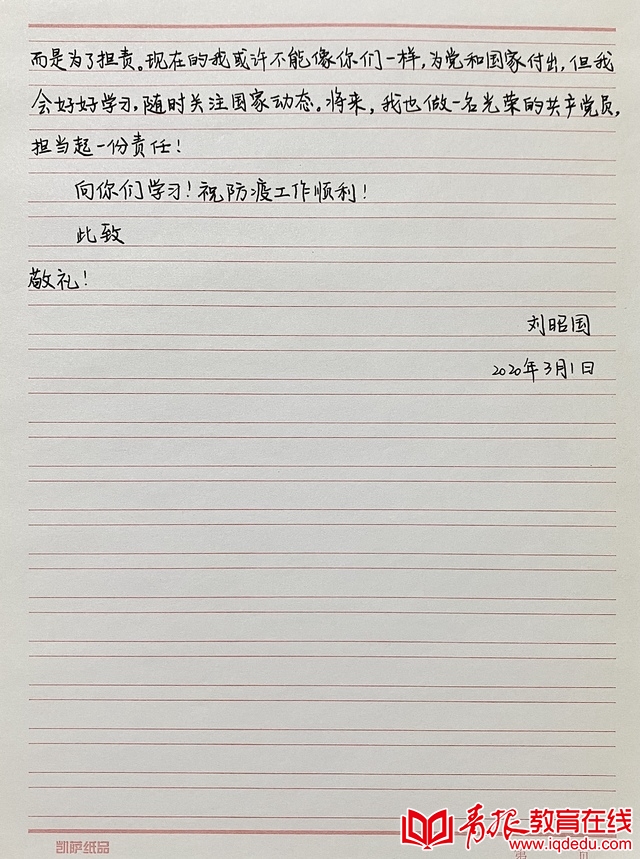 而是为了担责。现在的我或许不能像你们一样,为党和国家付出,但我
会好好学习,随时关注国家动态。将来,我也做一名光荣的共产党员,
担当起一份责任!
向你们学习!祝防疫工作顺利!
此致
敬礼!
刘昭国
2020年3月1日
凯萨纸品
第 页
青报教育在线
www.iqdedu.com